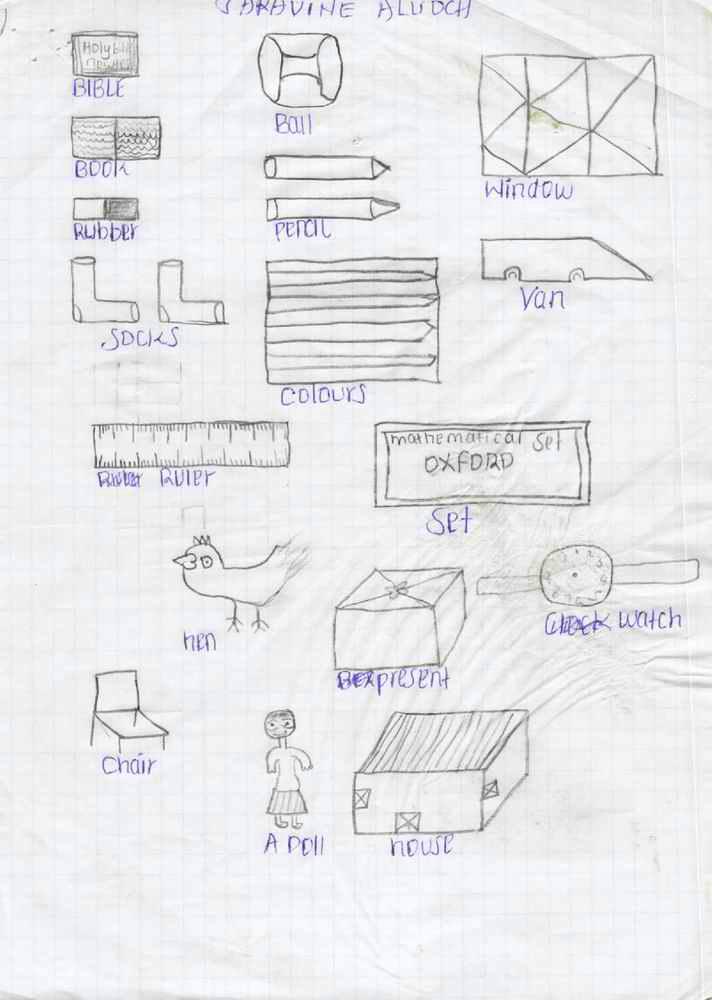 ALUOCH
Holy
BIBLE
Ball
BOOK
Window
Rubber
Pencil
Van
SOCKS
COLOURS
mathematical Set
OXFORD
RULER
Set
hen
Watch
present
Chair
A DOll
house